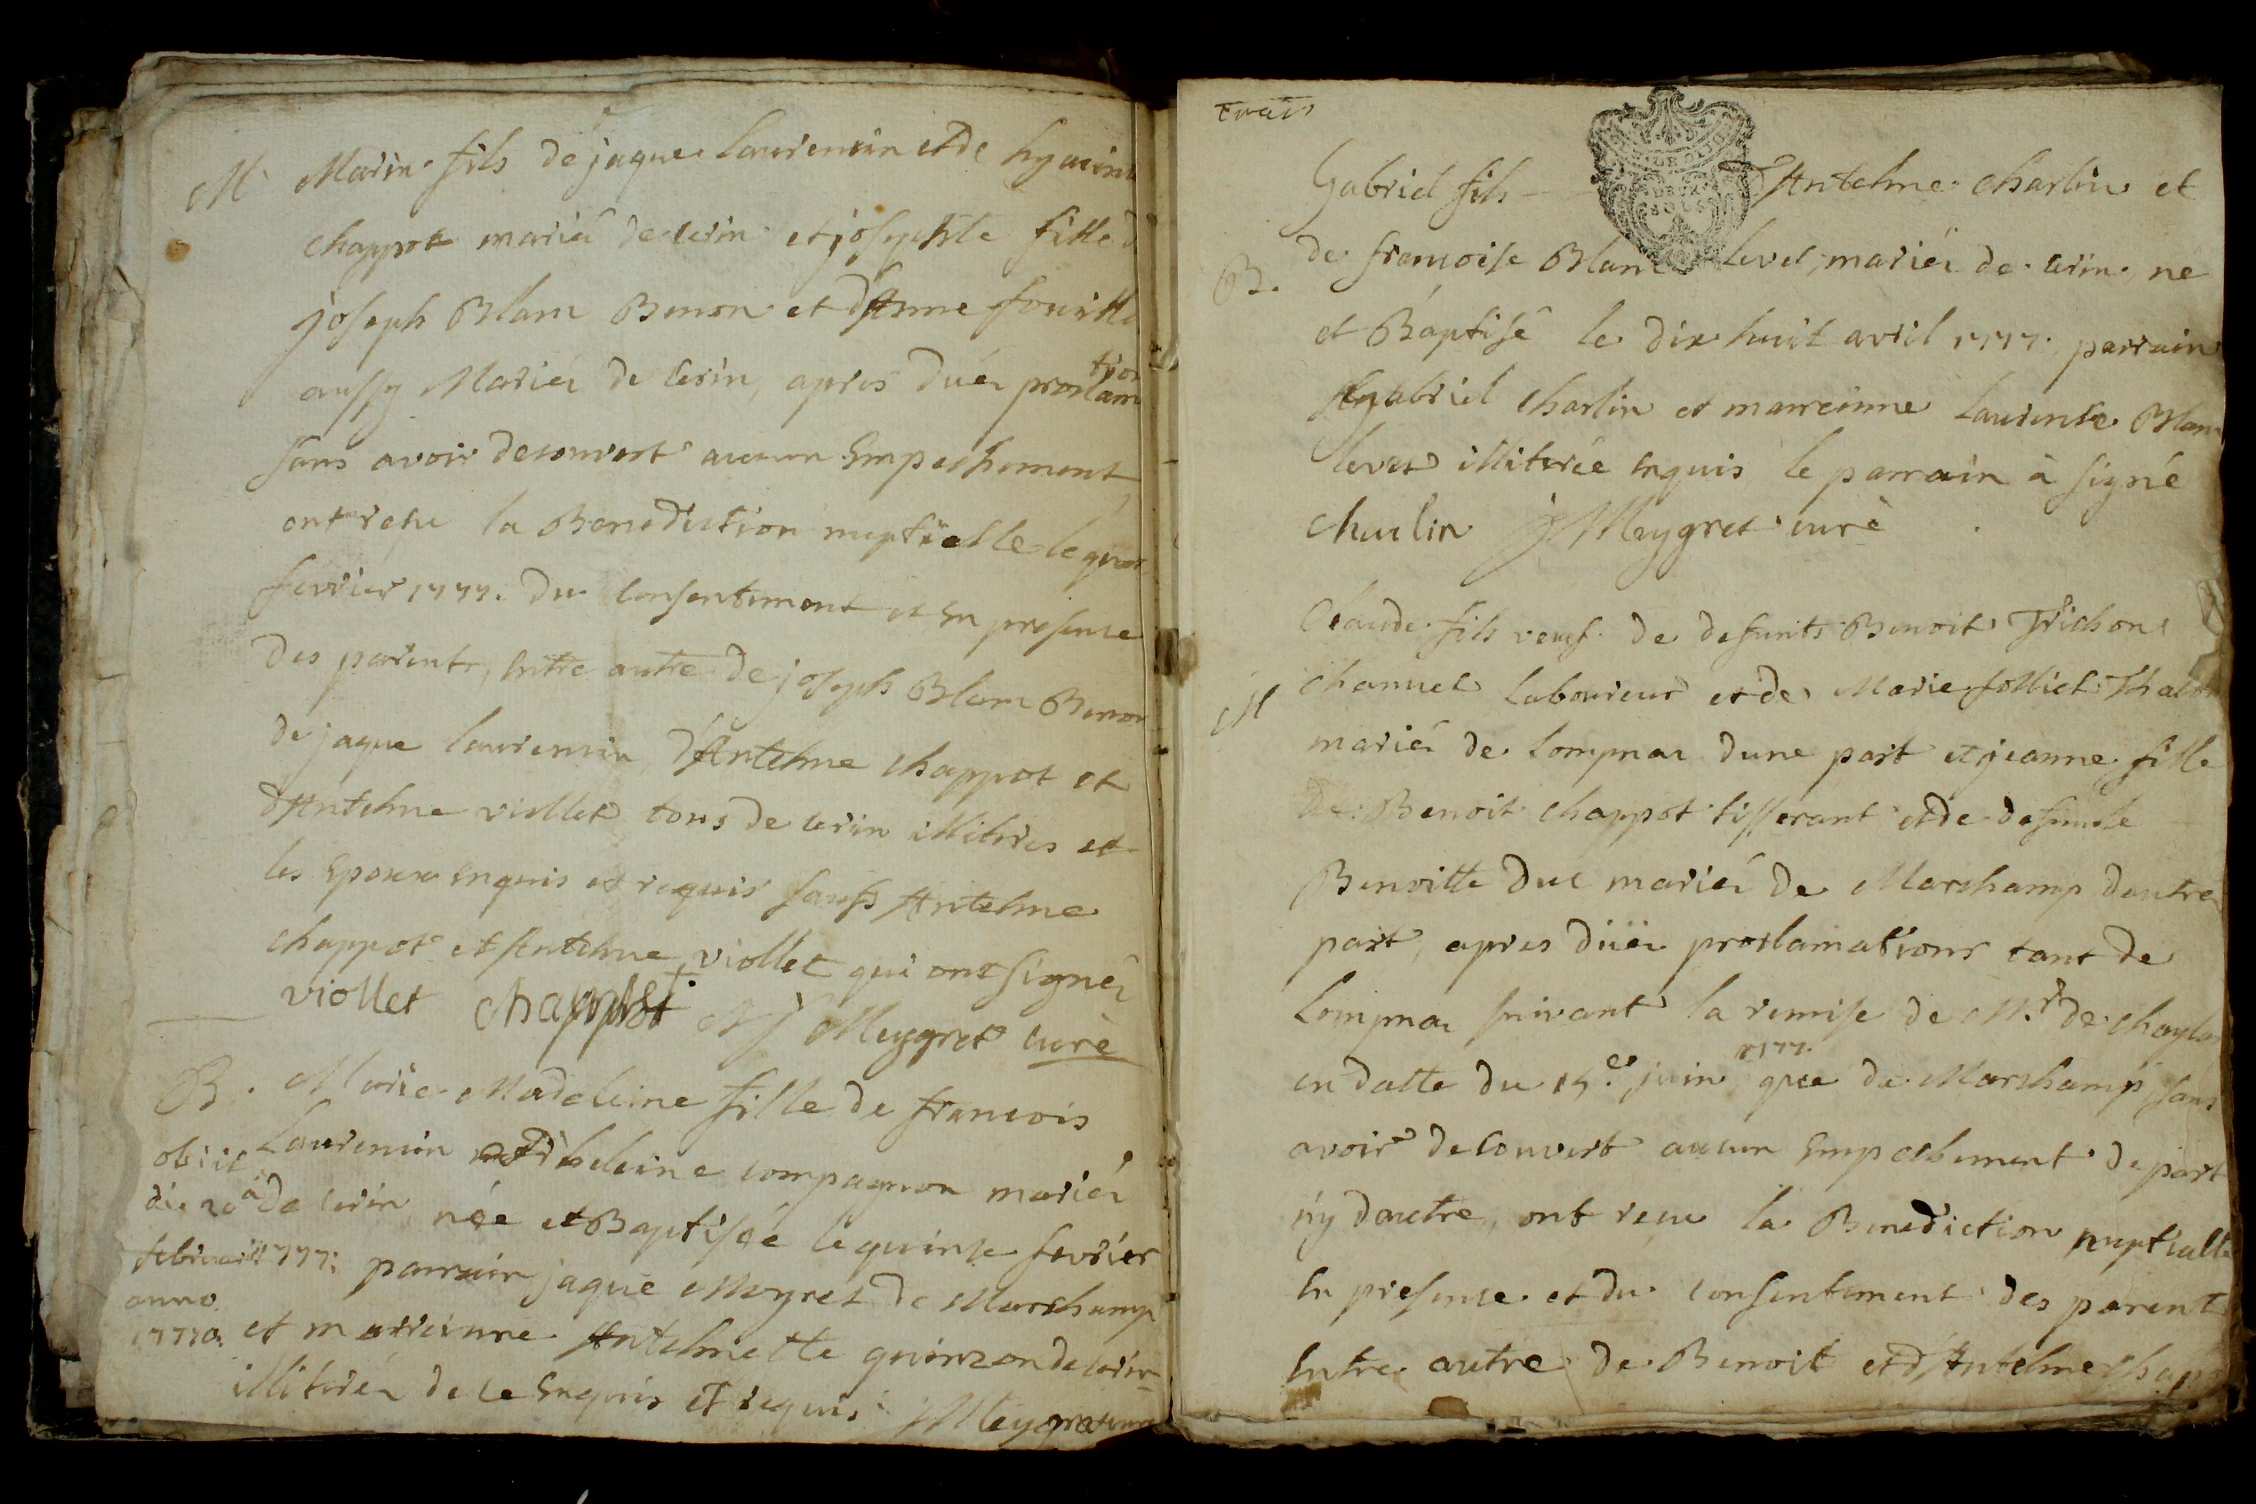 M Marin fils de jaque laurencin et de hyacint
chappot mariés de cerin et josephte fille d
joseph Blanc Benon et d'Anne fouille
aussy Mariés de Cerin, apres dués proclam
tion
sans avoir decouvert aucun Empechement
ont recu la Benediction nuptielle le
fevrier 1777. du Consentement et En presence
des parents, Entre autre de joseph Blanc Benon
de jaque laurencin d'Antelme chappot et
d'Antelme viollet tous de cerin illitirés et
les Epoux enquis et requis sauf Antelme
chappot et Antelme viollet qui ont signés
viollet chappot j Meygret curé
B. Marie Madeleine fille de francois
Laurencin et d'heleine compagnon mariés
de cerin née et Baptisée le quinze fevrier
1777. parrain jaque Meyret de Marchamp
et marrienne Antelmette guinzon de Cerin
illitirés de ce Enquis et requis j Meygret curé
obiit
die 20a
februarii
anno
1777
trois
DE DIJON
DEUX
SOLS
Gabriel fils d'Antelme charlin et
B. de francoise Blanc levet, mariés de cerin, ne
et Baptisé le dix huit avril 1777. parrain
gabriel charlin et marreinne Laurence Blanc
levet illitirée enquis le parrain à signé
charlin j Meygret curé
Claude fils veuf de defunts Benoit Trichon
M channet laboureur et de Marie folliet
mariés de Lompnas dune part et jeanne fille
de Benoit chappot tisserant et de defuncte
Benoitte duc mariés de Marchamp dautre
part, apres düës proclamations tant de
Lompnas suivant la remise de Mr. de
en datte du 15.e juin 1777. que de Marchamp sans
avoir decouvert aucun Empechement de part
n'y dautre, ont reçu la Benediction nuptialle
En presence et du consentement des parents
Entre autre de Benoit et d'Antelme chapp